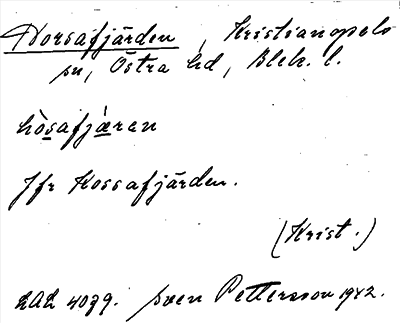 Horsafjärden, Kristianopels
sn, Östra hd, Blek. l.
hòsafjæren
Jfr Kossafjärden.
(Krist.)
LAL 4079. Sven Pettersson 1942.